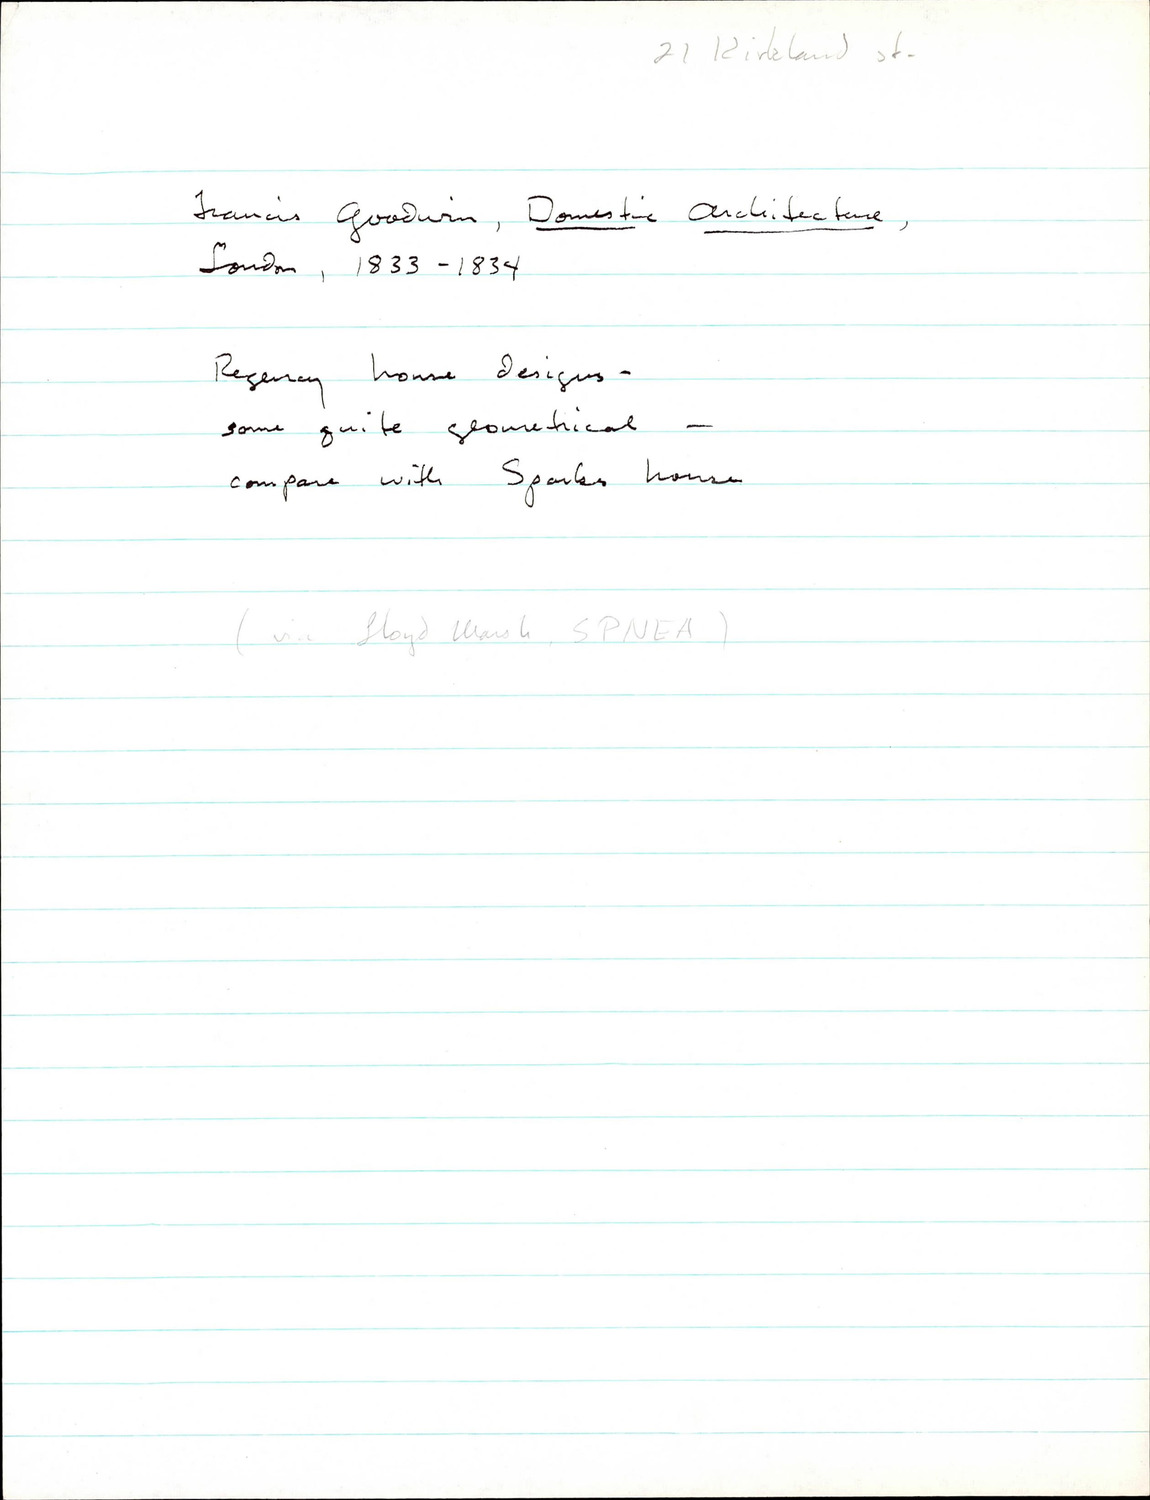 21 Kirkland St.
Francis Goodwin, Domestic Architecture,
London, 1833-1834
Regency house designs -
some quite geometrical -
compare with Sparks house
(via Lloyd Marsh, SPNEA)